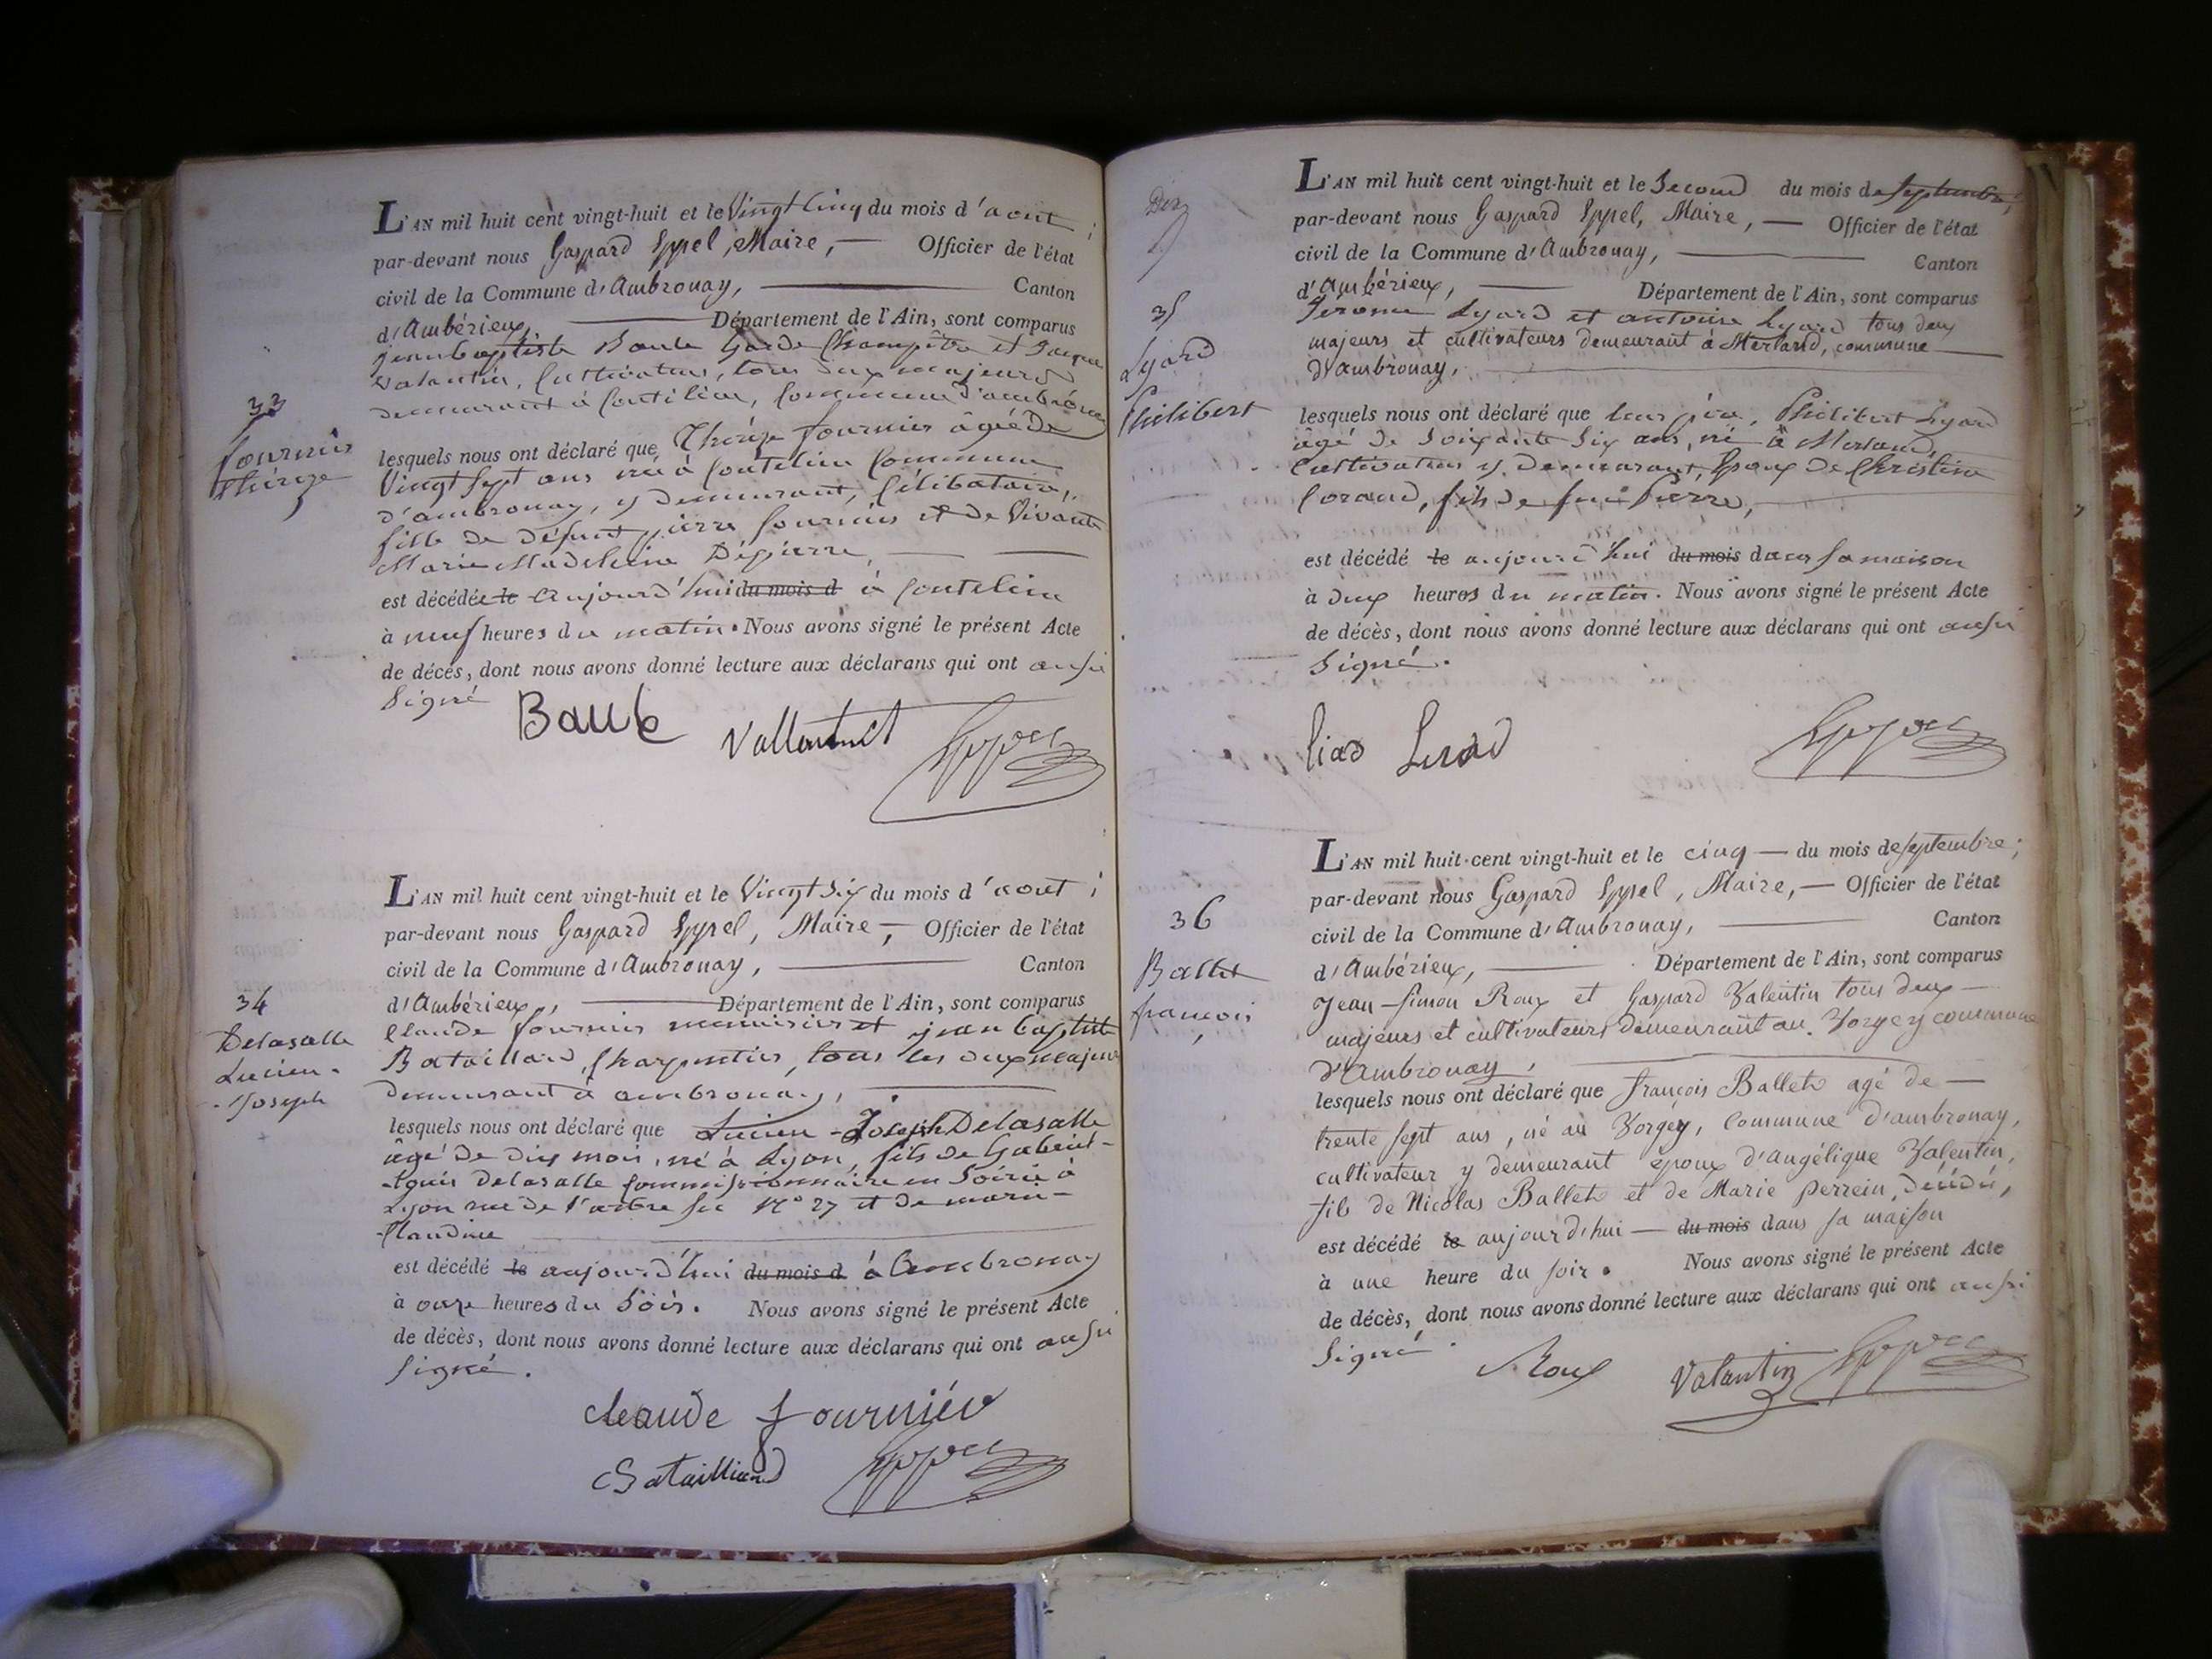 33
fournier
thérèze
L'AN mil huit cent vingt-huit et le Vingt Cinq du mois d'aout ;
par-devant nous Gaspard Eppel, Maire, — Officier de l'état
civil de la Commune d'Ambronay, — Canton
d'Ambérieux, — Département de l'Ain, sont comparus
jean baptiste Baule Garde Champêtre et Jacque
Valantin, Cultivateur, tous deux majeurs
demeurant à Coutelieu, Commune d'ambronay
lesquels nous ont déclaré que Thérèze fournier âgée de
Vingt sept ans née à Coutelieu Commune
d'ambronay, y demeurant, Célibataire,
fille de défunt pierre fournier et de Vivante
Marie Madeleine Dépierre, —
est décédée le aujourd'hui du mois d à Coutelieu
à neuf heures du matin. Nous avons signé le présent Acte
de décès, dont nous avons donné lecture aux déclarans qui ont aussi
signé
Baule Eppel
34
Delasalle
Lucien-
-Joseph
L'AN mil huit cent vingt-huit et le Vingt Six du mois d'aout ;
par-devant nous Gaspard Eppel, Maire, — Officier de l'état
civil de la Commune d'Ambronay, — Canton
d'Ambérieux, — Département de l'Ain, sont comparus
Claude fournier menuisier et jean baptiste
Bataillard, Charpentier, tous les deux majeurs
demeurant à ambronay, —
lesquels nous ont déclaré que Lucien-Joseph Delasalle
âgé de dix mois, né à Lyon, fils de Gabriel-
-Louis Delasalle Commissionnaire en Soirie à
Lyon rue de l'arbre sec N° 27 et de marie-
-Claudine —
est décédé le aujourd'hui du mois d à Ambronay
à onze heures du Soir. Nous avons signé le présent Acte
de décès, dont nous avons donné lecture aux déclarans qui ont aussi
signé.
claude fourniér
Batailliard Eppel
35
Lyard
Philibert
L'AN mil huit cent vingt-huit et le Second du mois de septembre ;
par-devant nous Gaspard Eppel, Maire, — Officier de l'état
civil de la Commune d'Ambronay, — Canton
d'Ambérieux, — Département de l'Ain, sont comparus
Jérome Lyard et antoine Lyard tous deux
majeurs et cultivateurs demeurant à Merland, commune —
d'ambronay, —
lesquels nous ont déclaré que leur père, Philibert Lyard
âgé de Soixante Six ans, né à Merland,
Cultivateur y demeurant, Epoux de Christine
Corand, fils de feu Pierre, —
est décédé le aujourd'hui du mois dans sa maison
à deux heures du matin. Nous avons signé le présent Acte
de décès, dont nous avons donné lecture aux déclarans qui ont aussi
signé.
liad Eppel
36
Ballet
francois
L'AN mil huit cent vingt-huit et le cinq — du mois de septembre ;
par-devant nous Gaspard Eppel, Maire, — Officier de l'état
civil de la Commune d'Ambronay, — Canton
d'Ambérieux, — Département de l'Ain, sont comparus
Jean-Simon Roux et Gaspard Valentin tous deux —
majeurs et cultivateurs demeurant au Vorgey commune
d'Ambronay, —
lesquels nous ont déclaré que françois Ballet agé de —
trente sept ans, né au Vorgey, Commune d'ambronay,
cultivateur y demeurant époux d'angélique Valentin,
fils de Nicolas Ballet et de Marie perrein,
est décédé le aujourd'hui — du mois dans sa maison
à une heure du soir. Nous avons signé le présent Acte
de décès, dont nous avons donné lecture aux déclarans qui ont aussi
signé.
Roux Valantin Eppel